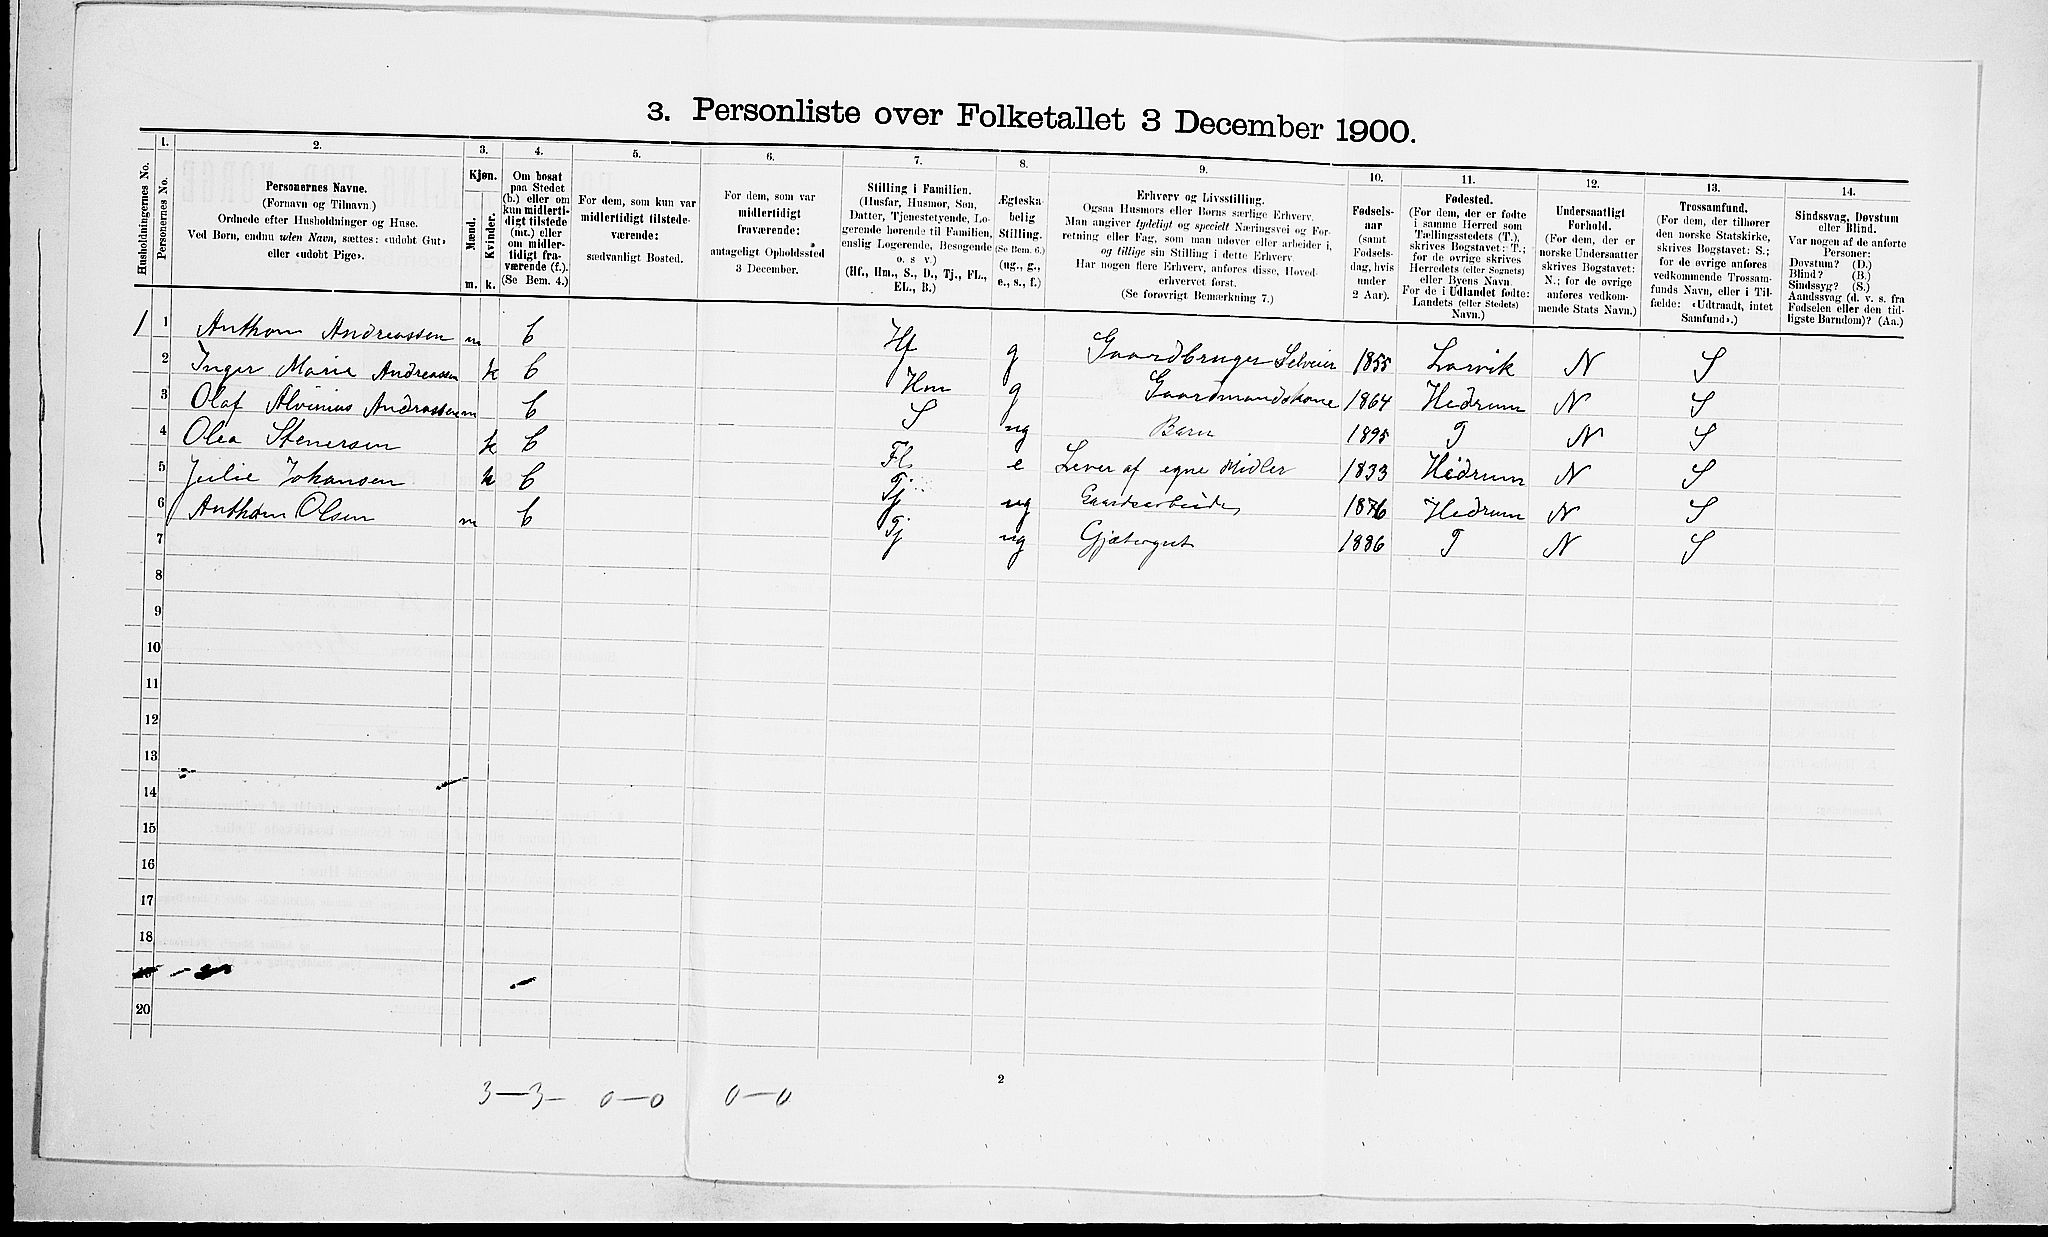 3. Personliste over Folketallet 3 December 1900.
Husholdningernes No.
1. Personernes No.
2. Personernes Navne.
(Fornavn og Tilnavn.)
Ordnede efter Husholdninger og Huse.
Ved Børn, endnu uden Navn, sættes: «udøbt Gut»
eller «udøbt Pige».
3. Kjøn.
Mænd. Kvinder.
m. k.
4. Om bosat
paa Stedet
(b.) eller om
kun midlerti-
digt tilstede
(mt.) eller
om midler-
tidigt fra-
værende (f.).
(Se Bem. 4.)
5. For dem, som kun var
midlertidigt tilstede-
værende:
sædvanligt Bosted.
6. For dem, som var
midlertidigt
fraværende:
antageligt Opholdssted
3 December.
7. Stilling i Familien.
(Husfar, Husmor, Søn,
Datter, Tjenestetyende, Lo-
gerende hørende til Familien,
enslig Logerende, Besøgende
o. s v.)
(Hf., Hm., S., D., Tj., FL.,
EL., B.)
8. Ægteska-
belig
Stilling.
(Se Bem. 6.)
(ug., g.,
e., s., f.)
9. Erhverv og Livsstilling.
Ogsaa Husmors eller Børns særlige Erhverv.
Man angiver tydeligt og specielt Næringsvei og For-
retning eller Fag, som man udøver eller arbeider i,
og tillige sin Stilling i dette Erhverv
Har nogen flere Erhverv, anføres disse, Hoved-
erhvervet først.
(Se forøvrigt Bemerkning 7.)
10. Fødsels-
aar
(samt
Fødsels-
dag, hvis
under
2 Aar).
11. Fødested.
(For dem, der er fødte
i samme Herred som
Tællingsstedets (T.),
skrives Bogstavet: T.;
for de øvrige skrives
Herredets (eller Sognets)
eller Byens Navn.
For de i Udlandet fødte:
Landets (eller Stedets)
Navn.)
12. Undersaatligt
Forhold.
(For dem, der er
norske Undersaatter
skrives Bogstavet:
N.; for de øvrige
anføres vedkom-
mende Stats Navn.)
13. Trossamfund.
(For dem, der tilhører
den norske Statskirke,
skrives Bogstavet: S.;
for de øvrige anføres
vedkommende Trossam-
funds Navn, eller i Til-
fælde: «Udtraadt, intet
Samfund».)
14. Sindssvag, Døvstum
eller Blind.
Var nogen af de anførte
Personer:
Døvstum? (D.)
Blind? (B.)
Sindssyg? (S.)
Aandssvag (d. v. s. fra
Fødselen eller den tid-
ligste Barndom)? (Aa.)
1 1 Anthon Andreassen m b Hf g Gaardbruger Selveier 1855 Larvik N S
2 Inger Marie Andreassen k b Hm g Gaardmandskone 1864 Hedrum N S
3 Olaf Alvinius Andreassen m b S ug Barn 1895 T N S
4 Olea Stenersen k b Fl e Lever af egne Midler 1833 Hedrum N S
5 Julie Johansen k b Tj ug Gaardsarbeide 1876 Hedrum N S
6 Anthon Olsen m b Tj ug Gjætergut 1886 T N S
7
8
9
10
11
12
13
14
15
16
17
18
19
20
3—3 0—0 0—0
2